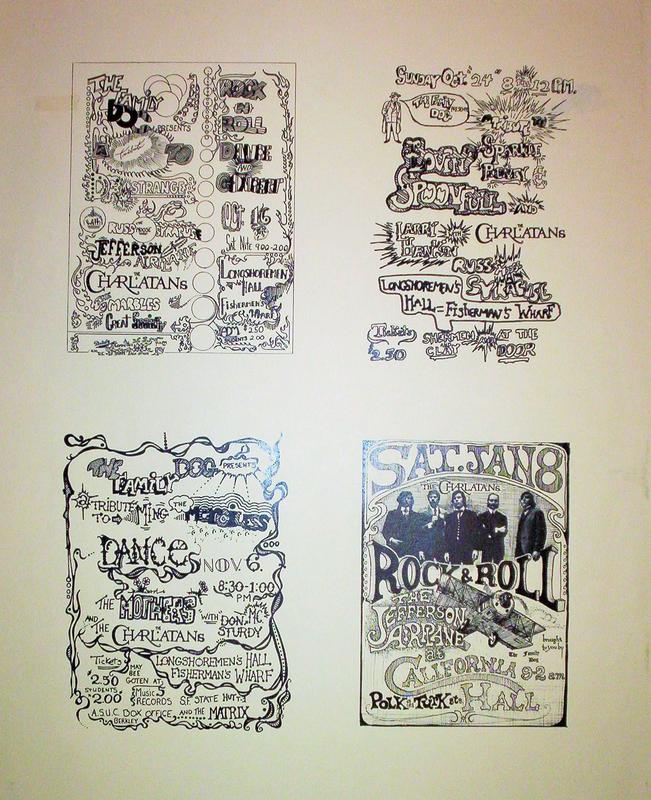 THE
FAMILY
DOG
PRESENTS
A
TO
DR. STRANGE
RUSS THE
SYRACUSE
JEFFERSON
AIRPLANE
THE
CHARLATANS
MARBLES
Great Society
ROCK
N
ROLL
DANCE
AND
CONCERT
Oct 16
Sat Nite 9:00-2:00
LONGSHOREMEN
HALL
Fishermen's
Wharf
$2.50
STUDENTS 2.00
SUNDAY Oct "24" 8 TO 12 P.M.
THE FAMILY
DOG
PRESENTS
A TRIBUTE TO
SPARKLE
PLENTY &
LOVIN'
SPOONFULL AND
LARRY
HANKIN
THE
CHARLATANS
RUSS
THE
SYRACUSE
LONGSHOREMEN'S
HALL = FISHERMAN'S WHARF
Tickets
$2.50
SHERMEN
CLAY
AT THE
DOOR
THE
FAMILY
DOG
PRESENTS
TRIBUTE
TO
MING
THE
MERCILESS
DANCE
NOV. 6.
8:30-1:00
P.M.
THE
MOTHERS
AND
THE
CHARLATANS
"WITH"
M.C.
DON
STURDY
"Tickets"
$2.50
STUDENTS
$2.00
MAY
BEE
GOTEN AT
LONGSHOREMEN'S HALL
FISHERMAN'S WHARF
Music
RECORDS
S.F. STATE HUT T-1
A.S.U.C. BOX OFFICE
BERKLEY
AND THE MATRIX
SAT. JAN 8
THE CHARLATANS
ROCK & ROLL
THE
JEFFERSON
AIRPLANE
brought
to you by
The Family
Dog
at
CALIFORNIA
9-2 a.m.
HALL
POLK & TURK sts